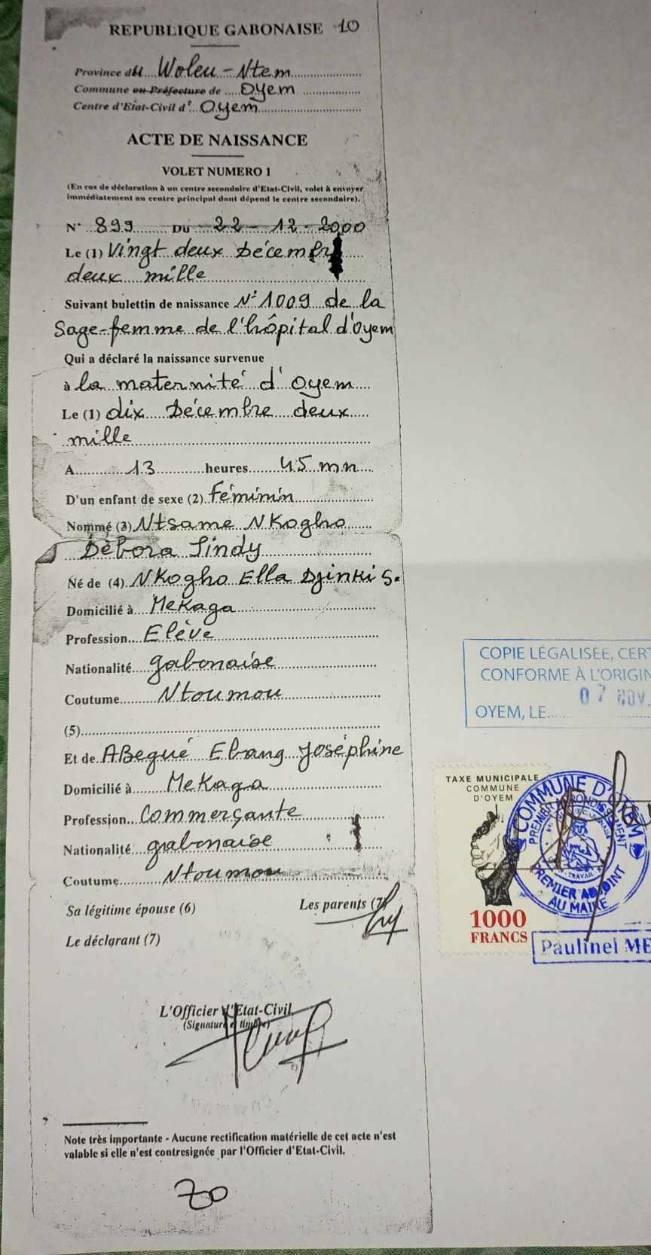 REPUBLIQUE GABONAISE 10
Province du Woleu-Ntem
Commune ou Préfecture de Oyem
Centre d'Etat-Civil d' Oyem
ACTE DE NAISSANCE
VOLET NUMERO 1
(En cas de déclaration à un centre secondaire d'Etat-Civil, volet à envoyer
immédiatement au centre principal dont dépend le centre secondaire).
N° 899 DU 22-12-2000
Le (1) Vingt deux Décembre
deux mille
Suivant bulettin de naissance N° 1009 de la
Sage-femme de l'hôpital d'Oyem
Qui a déclaré la naissance survenue
à la maternité d'Oyem
Le (1) dix Décembre deux
mille
A 13 heures 45 mn
D'un enfant de sexe (2) Féminin
Nommé (3) Ntsame Nkogho
Débora Jindy
Né de (4) Nkogho Ella Djinki S.
Domicilié à Mekaga
Profession Elève
Nationalité gabonaise
Coutume Ntoumou
(5)
Et de Abegué Ebang Joséphine
Domicilié à Mekaga
Profession Commerçante
Nationalité gabonaise
Coutume Ntoumou
Sa légitime épouse (6) Les parents (7)
Le déclarant (7)
L'Officier d'Etat-Civil
(Signature et timbre)
Note très importante - Aucune rectification matérielle de cet acte n'est
valable si elle n'est contresignée par l'Officier d'Etat-Civil.
COPIE LÉGALISEE, CER
CONFORME À L'ORIGIN
0 7 NOV.
OYEM, LE
TAXE MUNICIPALE
COMMUNE
D'OYEM
1000
FRANCS
COMMUNE D'OYEM
PREMIER ARRONDISSEMENT
PREMIER ADJOINT
AU MAIRE
Paulinel ME